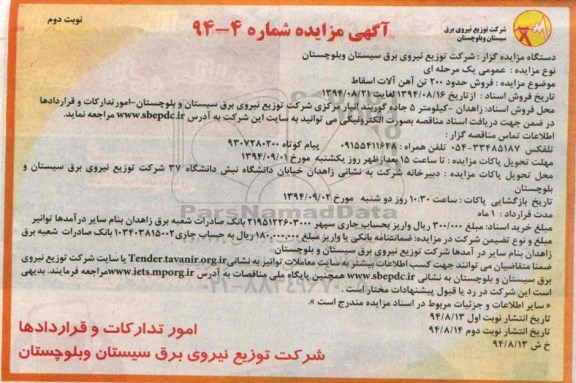 نوبت دوم
آگهی مزایده شماره ۴-۹۴
شرکت توزیع نیروی برق
سیستان وبلوچستان
دستگاه مزایده گزار : شرکت توزیع نیروی برق سیستان وبلوچستان
نوع مزایده : عمومی یک مرحله ای
موضوع مزایده : فروش حدود ۲۰۰ تن آهن آلات اسقاط
تاریخ فروش اسناد : ازتاریخ ۱۳۹۴/۰۸/۱۶ لغایت ۱۳۹۴/۰۸/۲۱
محل فروش اسناد: زاهدان -کیلومتر ۵ جاده گوربند انبار مرکزی شرکت توزیع نیروی برق سیستان و بلوچستان-امورتدارکات و قراردادها
در ضمن جهت دریافت اسناد مناقصه بصورت الکترونیکی می توانید به سایت این شرکت به آدرس www.sbepdc.ir مراجعه نماید.
اطلاعات تماس مناقصه گزار :
تلفکس ۳۳۴۸۵۱۸۷-۰۵۴ تلفن همراه : ۰۹۱۵۵۴۱۱۶۴۸ پیام کوتاه ۹۳۰۷۲۸۰۲۰۰
مهلت تحویل پاکات مزایده : تا ساعت ۱۵ بعدازظهر روز یکشنبه مورخ ۱۳۹۴/۰۹/۰۱
محل تحویل پاکات مزایده : دبیرخانه شرکت به نشانی زاهدان خیابان دانشگاه نبش دانشگاه ۳۷ شرکت توزیع نیروی برق سیستان و
بلوچستان
تاریخ بازگشایی پاکات : ساعت ۱۰:۳۰ روز دو شنبه مورخ ۱۳۹۴/۰۹/۰۲
مدت قرارداد : ۱ماه
مبلغ خرید اسناد: مبلغ ۳۰۰/۰۰۰ ریال واریز بحساب جاری سپهر ۰۲۱۹۵۱۲۲۶۰۳۰۰۰ بانک صادرات شعبه برق زاهدان بنام سایر درآمدها توانیر
مبلغ و نوع تضیمن شرکت در مزایده: ضمانتنامه بانکی یا واریز مبلغ ۱۸۰,۰۰۰,۰۰۰ ریال به حساب جاری۰۱۰۳۴۰۳۸۱۵۰۰۲ بانک صادرات شعبه برق
زاهدان بنام سایر در آمدها شرکت توزیع نیروی برق سیستان و بلوچستان.
ضمنا متقاضیان می توانند جهت کسب اطلاعات بیشتر به سایت معاملات توانیر به نشانیTender.tavanir.org.ir یا سایت شرکت توزیع نیروی
برق سیستان و بلوچستان به نشانی www.sbepdc.ir همچنین پایگاه ملی مناقصات به آدرس www.iets.mporg.irمراجعه فرمایند. بدیهی
است این شرکت در رد یا قبول پیشنهادات مختار است .
« سایر اطلاعات و جزئیات مربوط در اسناد مزایده مندرج است ».
تاریخ انتشار نوبت اول ۹۴/۸/۱۳
تاریخ انتشار نوبت دوم ۹۴/۸/۱۴
خ ش ۹۴/۸/۱۳
امور تدارکات و قراردادها
شرکت توزیع نیروی برق سیستان وبلوچستان
ParsNamadData